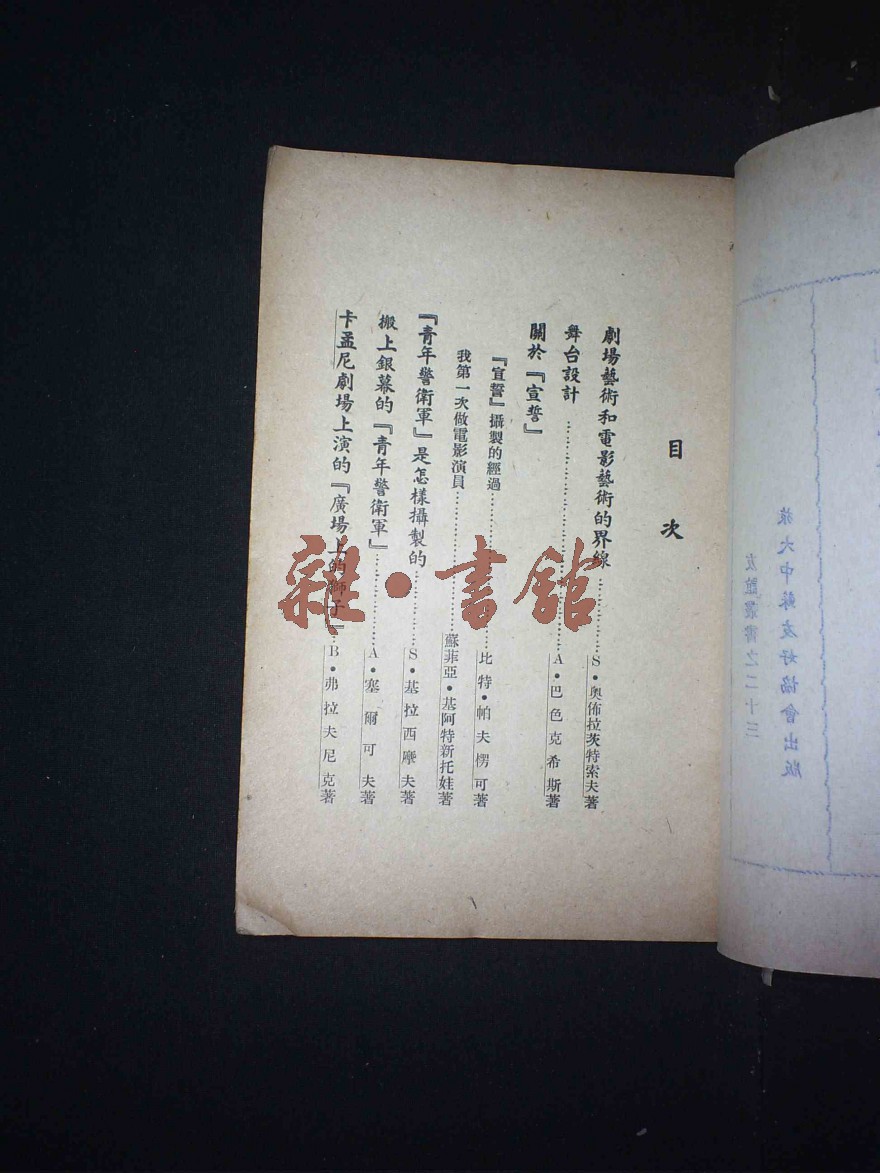 目次
劇場藝術和電影藝術的界線…………S・奧佈拉茨特索夫著
舞台設計…………A・巴色克希斯著
關於『宣誓』
『宣誓』攝製的經過…………比特・帕夫楞可著
我第一次做電影演員…………蘇菲亞・基阿特新托娃著
『青年警衛軍』是怎樣攝製的…………S・基拉西摩夫著
搬上銀幕的『青年警衛軍』…………A・塞爾可夫著
卡孟尼劇場上演的『廣場上的獅子』…………B・弗拉夫尼克著
雜・書館
旅大中蘇友好協會出版
友誼叢書之二十三